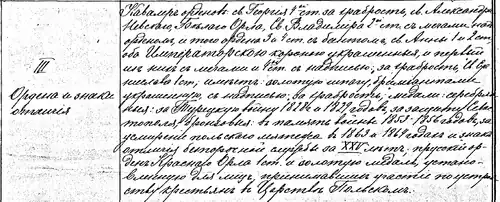 III
Ордена и знаки
отличія
Кавалеръ орденовъ: св. Георгія 4й ст. за храбрость, св. Александра
Невскаго, Бѣлаго Орла, Св. Владиміра 2й ст. съ мечами надъ
орденомъ, и того орд. 3 и 4 ст. съ бантомъ, св. Анны 1 и 2 ст.
обѣ Императорскою короною украшенныя, и первый
изъ нихъ съ мечами и 4й ст. съ надписью, за храбрость, и
Станислава 1 ст., имѣетъ: золотую шпагу, бриліантами
украшенную, съ надписью, за храбрость, медали: серебря
ныя: за Турецкую войну 1828 и 1829 годовъ, за защиту Сева
стополя, бронзовыя: въ память войны 1853-1856 годовъ, за
усмиреніе польскаго мятежа въ 1863 и 1864 годахъ и знакъ
отличія безпорочной службы за XXV лѣтъ, прусскій ор
денъ Краснаго Орла 1 ст. и золотую медаль, устано
вленную для лицъ, принимавшихъ участіе по устрой
ству крестьянъ въ Царствѣ Польскомъ.